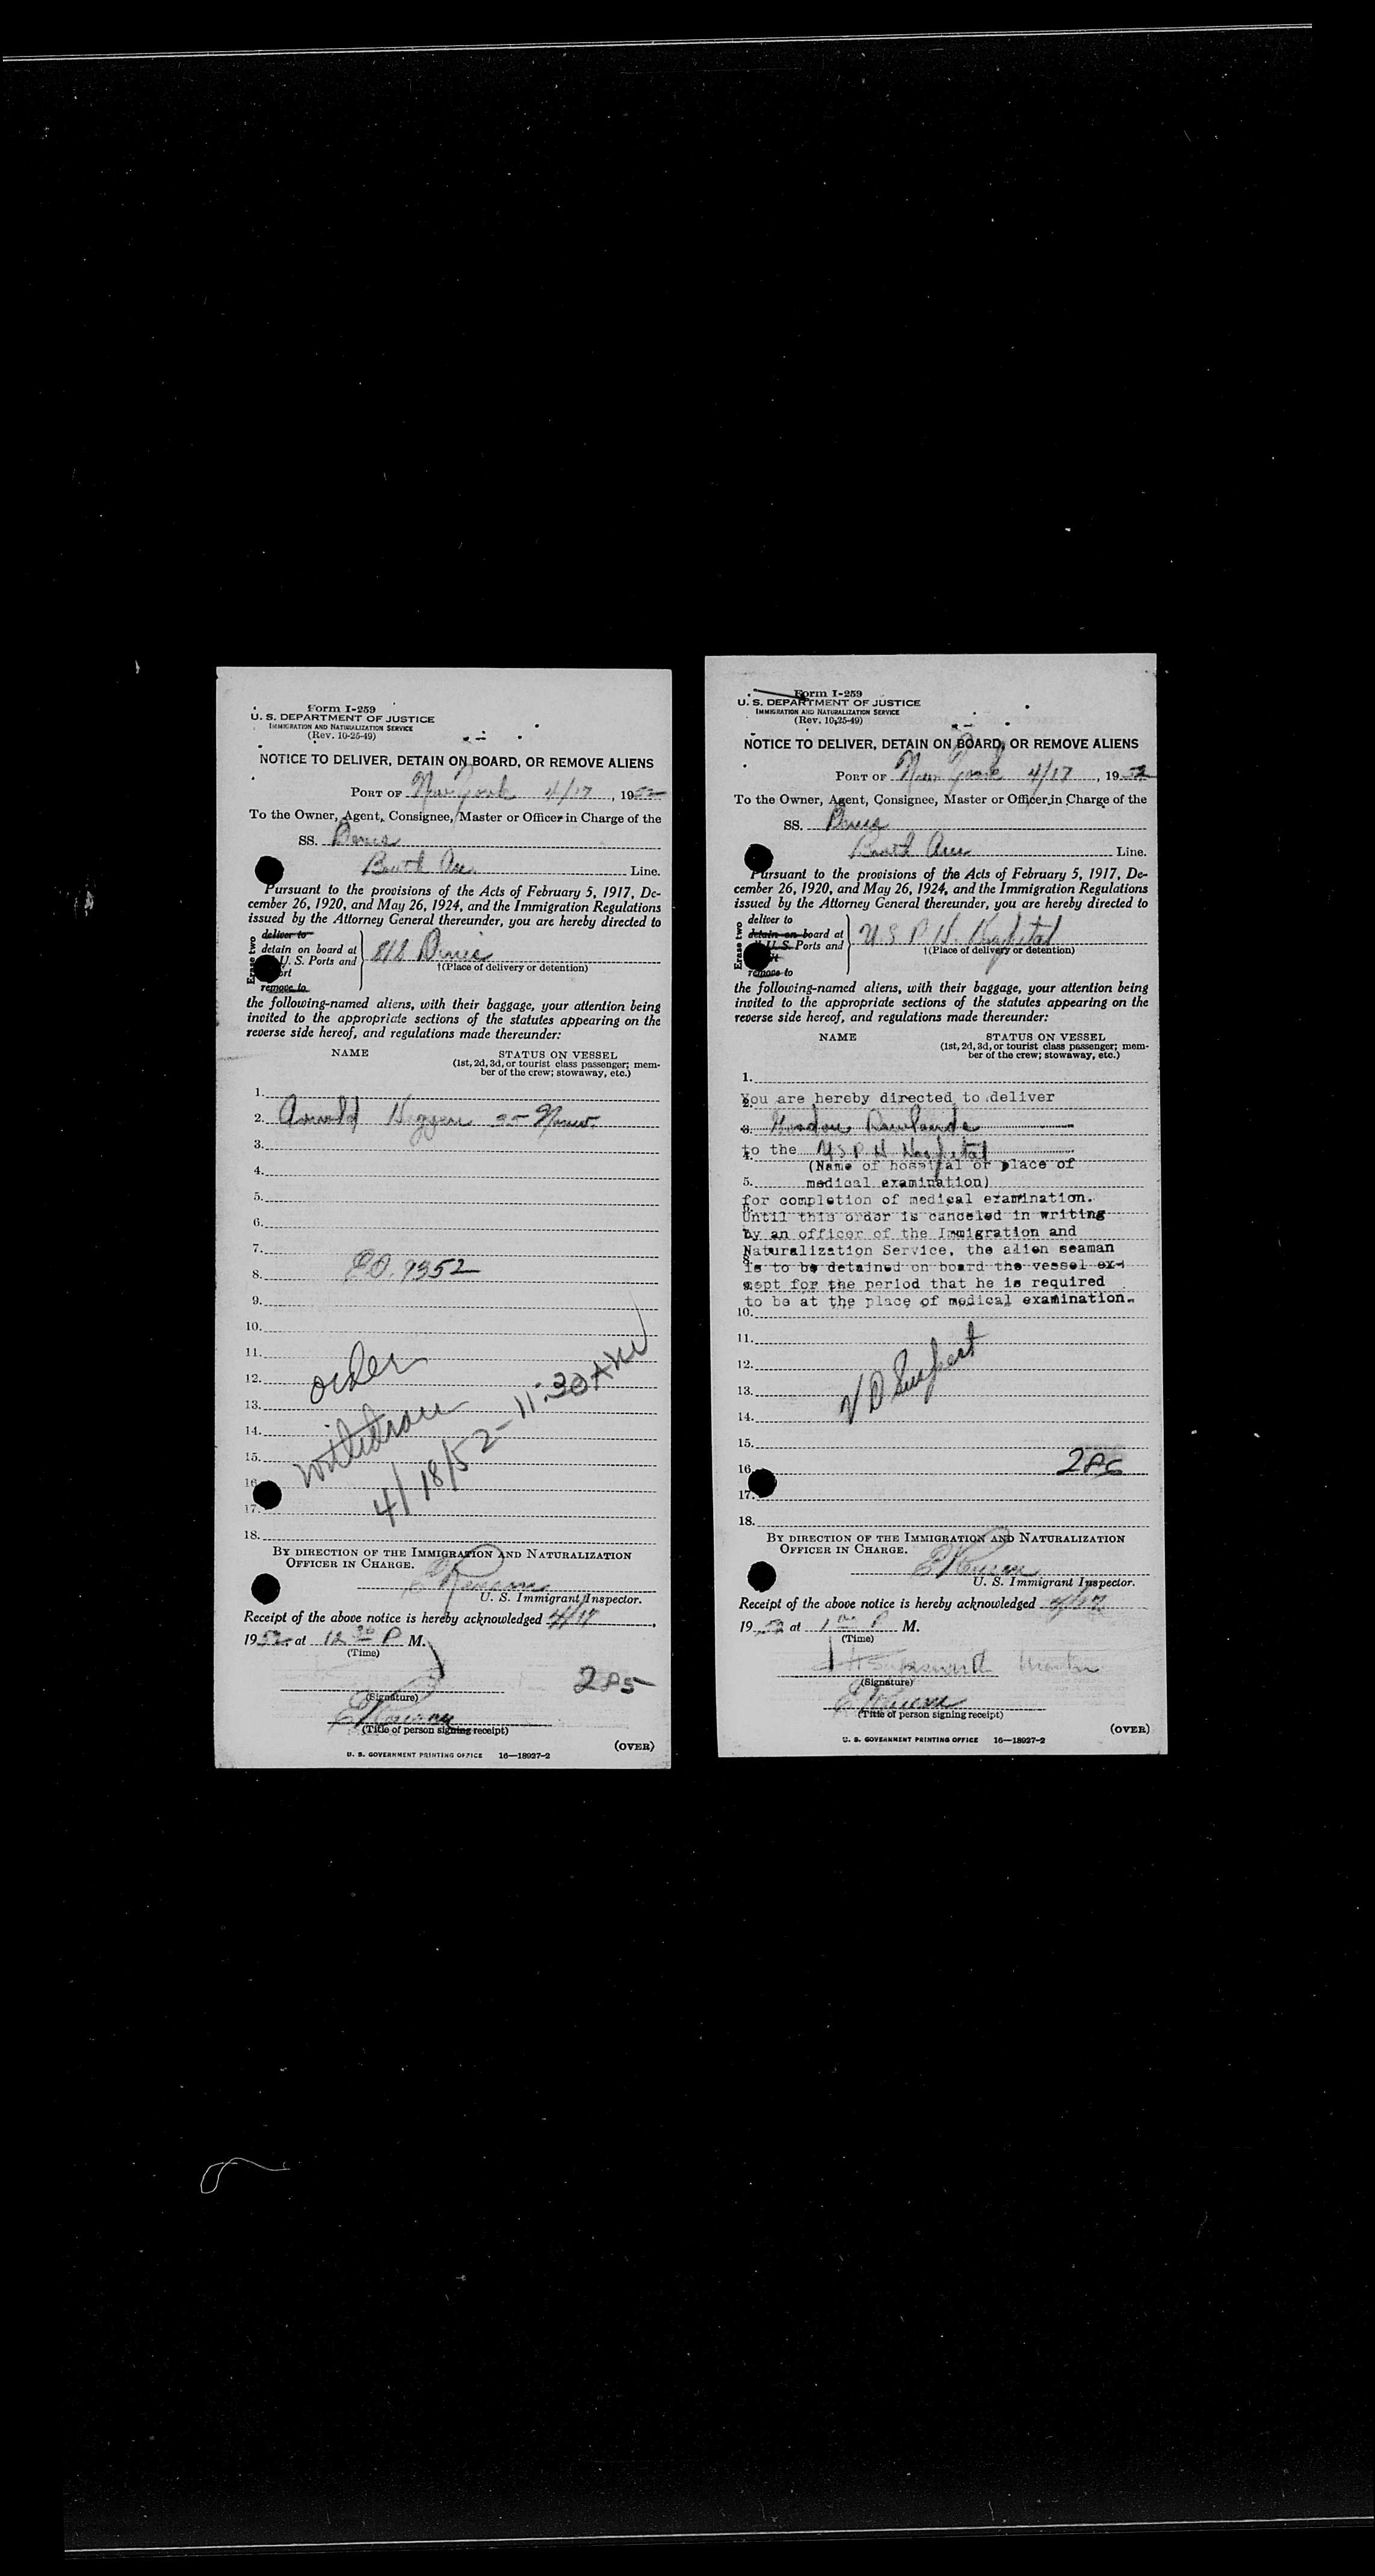 Form I-259
U. S. DEPARTMENT OF JUSTICE
IMMIGRATION AND NATURALIZATION SERVICE
(Rev. 10-25-49)
NOTICE TO DELIVER, DETAIN ON BOARD, OR REMOVE ALIENS
PORT OF New York 4/17, 1952
To the Owner, Agent, Consignee, Master or Officer in Charge of the
SS.
Line.
Pursuant to the provisions of the Acts of February 5, 1917, De-
cember 26, 1920, and May 26, 1924, and the Immigration Regulations
issued by the Attorney General thereunder, you are hereby directed to
Erase two
deliver to
detain on board at
U. S. Ports and
remove to
†(Place of delivery or detention)
the following-named aliens, with their baggage, your attention being
invited to the appropriate sections of the statutes appearing on the
reverse side hereof, and regulations made thereunder:
NAME
STATUS ON VESSEL
(1st, 2d, 3d, or tourist class passenger; mem-
ber of the crew; stowaway, etc.)
1.
2. Arnold
3.
4.
5.
6.
7.
8. 9352
9.
10.
11.
12. order
13.
14.
15. withdrawn
16. 4/18/52 - 11:30 AM
17.
18.
BY DIRECTION OF THE IMMIGRATION AND NATURALIZATION
OFFICER IN CHARGE.
U. S. Immigrant Inspector.
Receipt of the above notice is hereby acknowledged 4/17,
1952 at 12 30 P M.
(Time)
(Signature)
(Title of person signing receipt)
(OVER)
U. S. GOVERNMENT PRINTING OFFICE 16—18927-2
Form I-259
U. S. DEPARTMENT OF JUSTICE
IMMIGRATION AND NATURALIZATION SERVICE
(Rev. 10-25-49)
NOTICE TO DELIVER, DETAIN ON BOARD, OR REMOVE ALIENS
PORT OF New York 4/17, 1952
To the Owner, Agent, Consignee, Master or Officer in Charge of the
SS.
Line.
Pursuant to the provisions of the Acts of February 5, 1917, De-
cember 26, 1920, and May 26, 1924, and the Immigration Regulations
issued by the Attorney General thereunder, you are hereby directed to
Erase two
deliver to
detain on board at
U. S. Ports and
remove to
U S P H Hospital
†(Place of delivery or detention)
the following-named aliens, with their baggage, your attention being
invited to the appropriate sections of the statutes appearing on the
reverse side hereof, and regulations made thereunder:
NAME
STATUS ON VESSEL
(1st, 2d, 3d, or tourist class passenger; mem-
ber of the crew; stowaway, etc.)
1.
You are hereby directed to deliver
3. Gordon Rawlands
to the U S P H Hospital
(Name of hospital or place of
5. medical examination)
for completion of medical examination.
Until this order is canceled in writing
by an officer of the Immigration and
Naturalization Service, the alien seaman
is to be detained on board the vessel ex-
cept for the period that he is required
to be at the place of medical examination.
10.
11.
12.
13. V D Suspect
14.
15.
16.
17.
18.
BY DIRECTION OF THE IMMIGRATION AND NATURALIZATION
OFFICER IN CHARGE.
U. S. Immigrant Inspector.
Receipt of the above notice is hereby acknowledged 4/17
1952 at 1 P M.
(Time)
(Signature)
(Title of person signing receipt)
(OVER)
U. S. GOVERNMENT PRINTING OFFICE 16—18927-2